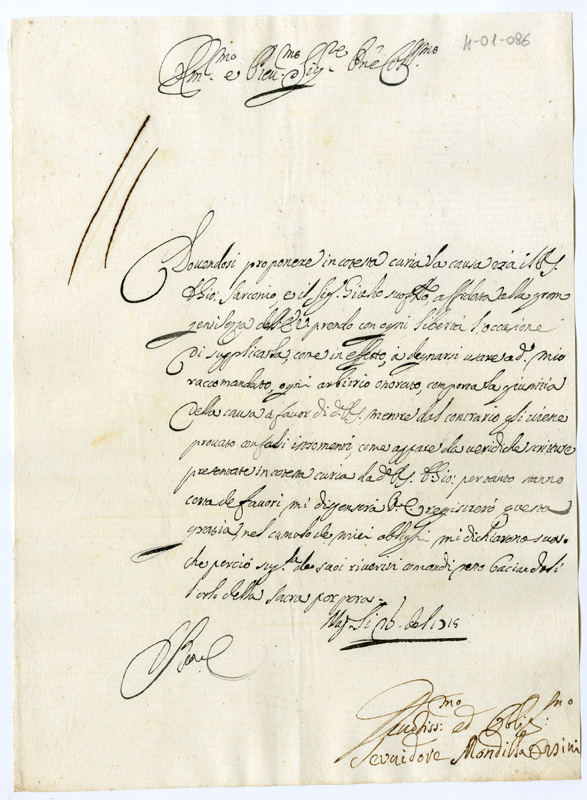 4-01-086
Em.mo e Rev.mo Sig.re P'ne Col.mo
Dovendosi proporre in cotesta curia la causa trà il S.
Gio: Sarconio, e il Sig. suo affidato nella gran
gentilezza dell'E.V. prendo con ogni libertà l'occasione
di supplicarla, come in effetto, à degnarsi usare a d.o mio
raccomandato, ogni arbitrio onorato, comporta la giustitia
della causa a favor di d.o S. mentre dal contrario gli viene
provato con falsi istromenti, come appare da veridiche scritture
presentate in cotesta curia da d.o S. Gio: pertanto stanno
certa de favori mi dispenserà V.E. registrerò questa
gratia, nel cumulo de miei oblighi, mi dichiarono suoi.
che perciò de suoi riveriti comandi resto baciandoli
l'orlo della sacra porpora.
Nap. li 16
Um.mo Devotiss: ed Oblig.mo
Servidore Mondilla Orsini